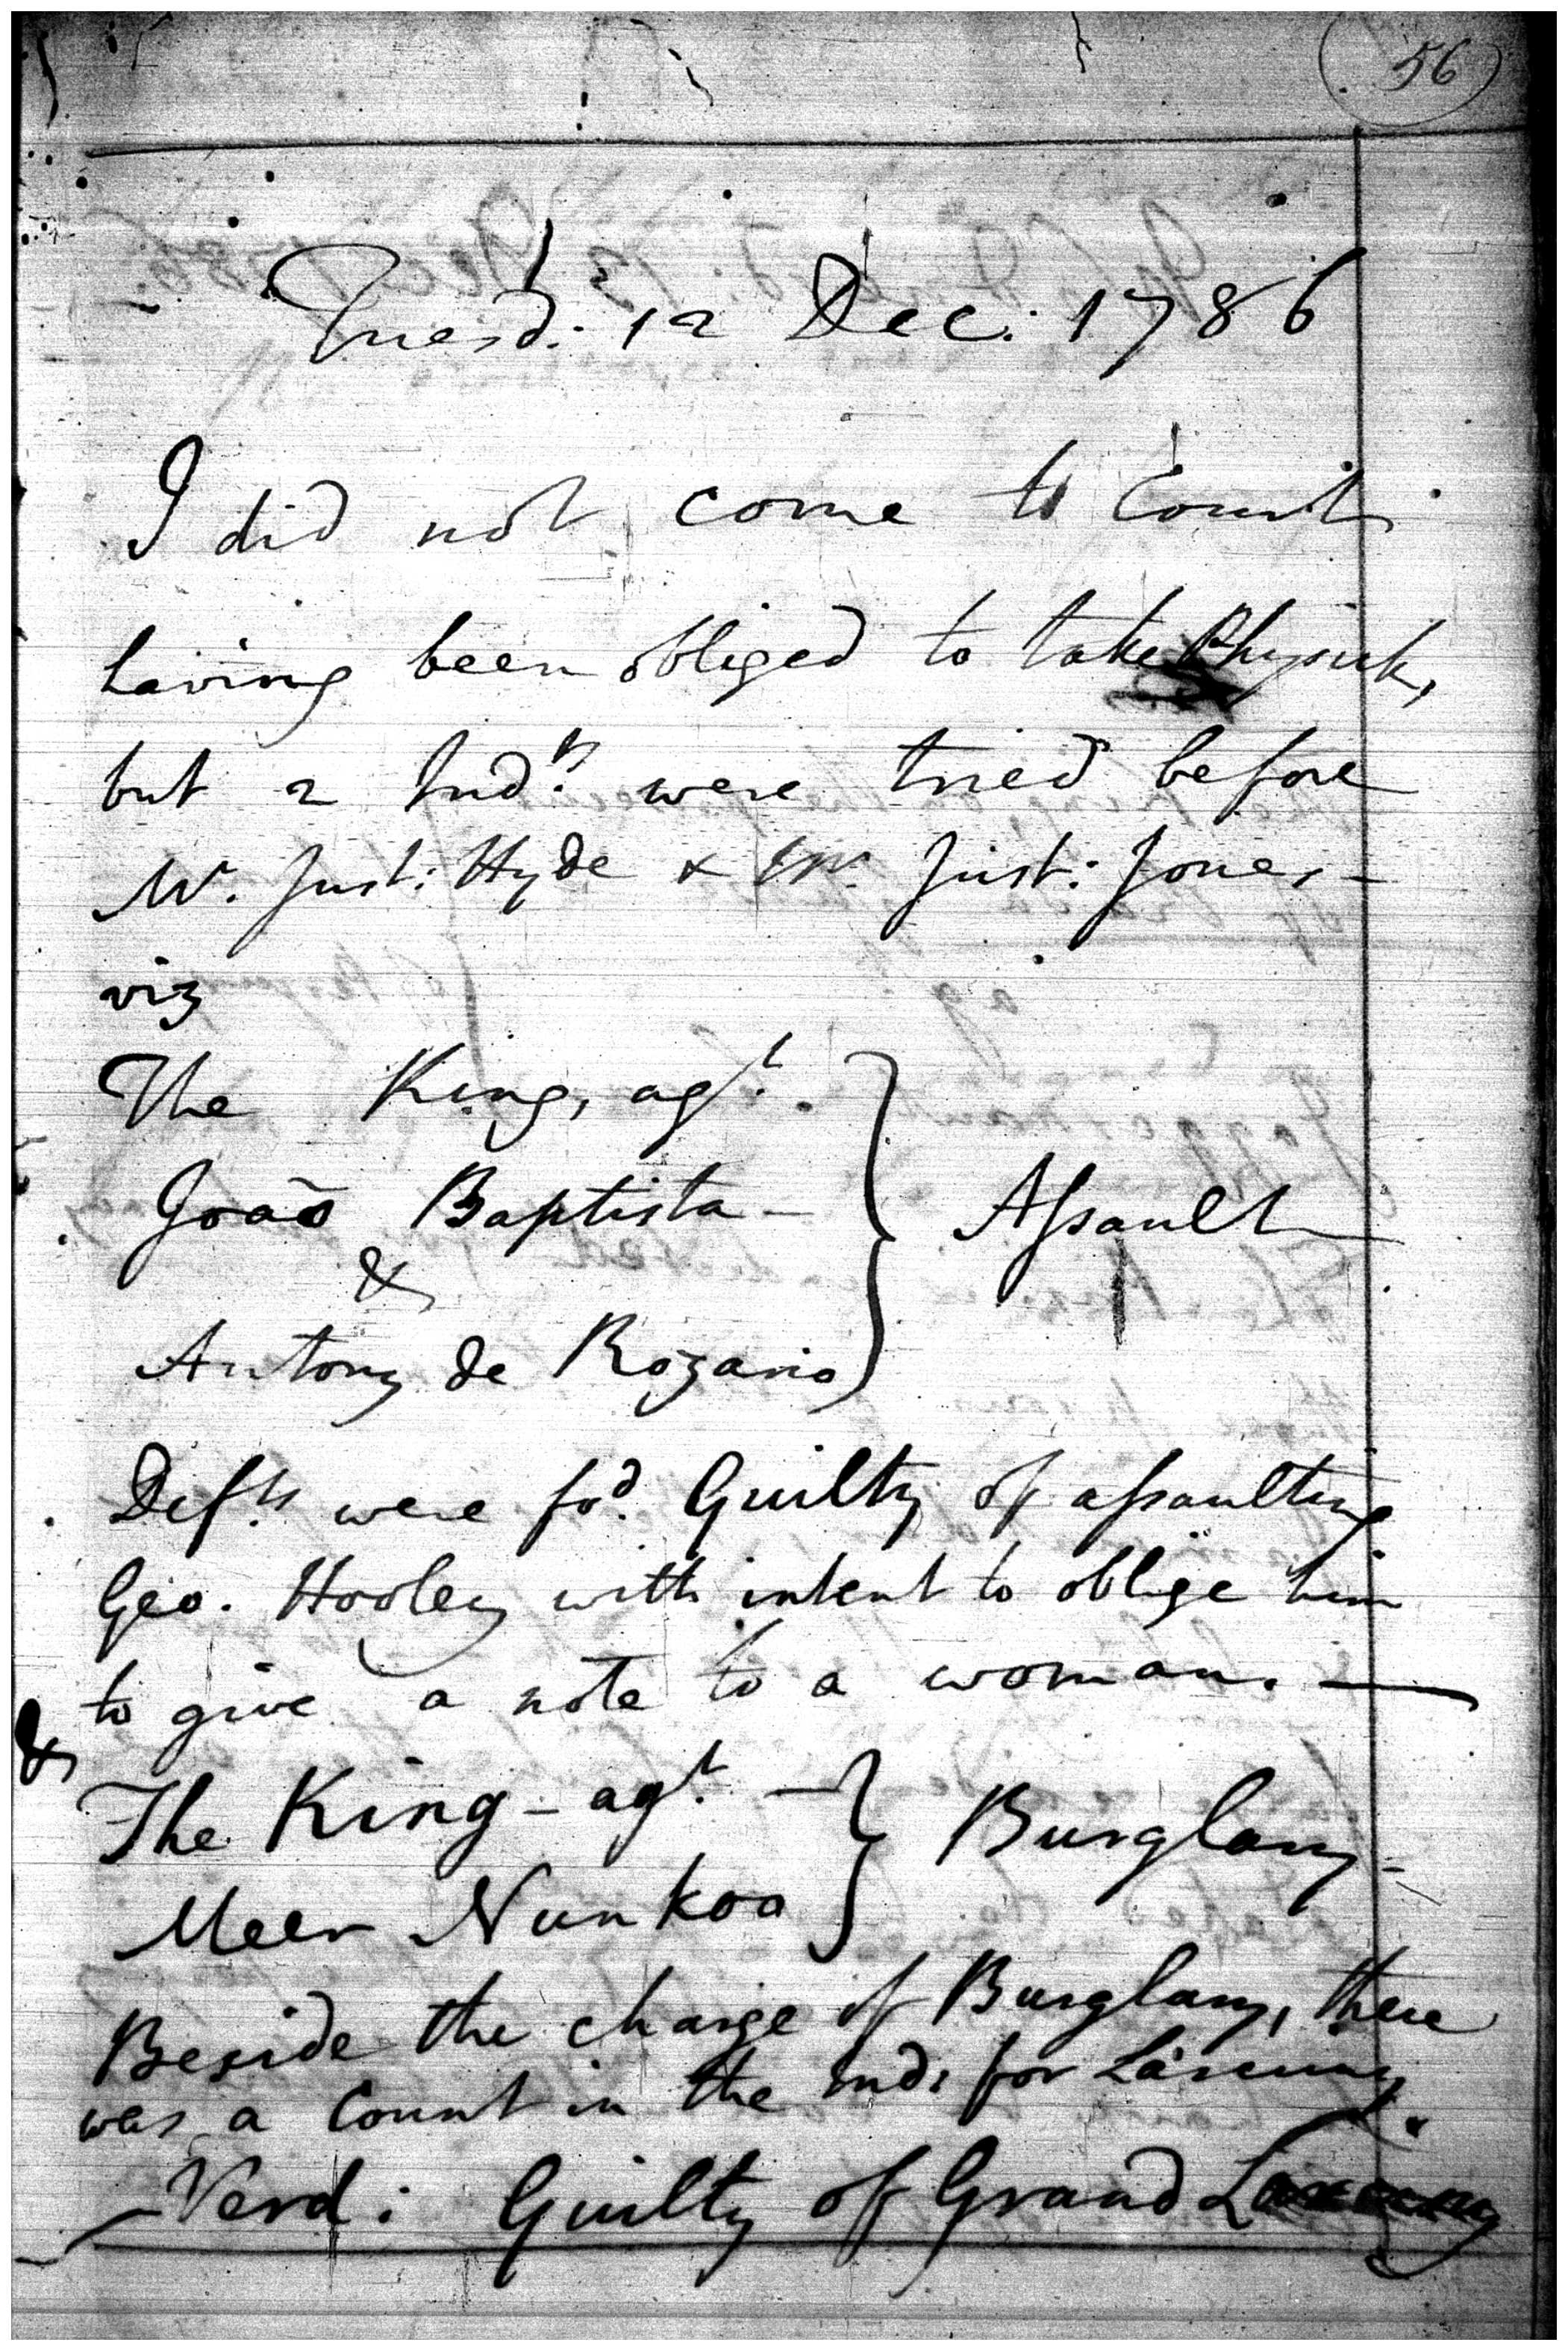 56
Tuesd: 12 Dec: 1786
I did not come to Court
having been obliged to take Physick,
but 2 Indts. were tried before
Mr. Just: Hyde & Mr. Just: Jones -
viz
The King, agt.
Joaõ Baptista - } Assault
&
Antony de Rozario
Defts. were fod. Guilty of assaulting
Geo. Hooley with intent to oblige him
to give a note to a woman. —
&
The King - agt. - } Burglary -
Meer Nunkoo
Beside the charge of Burglary, there
was a Count in the Ind: for Larceny.
Verd: Guilty of Grand Larceny